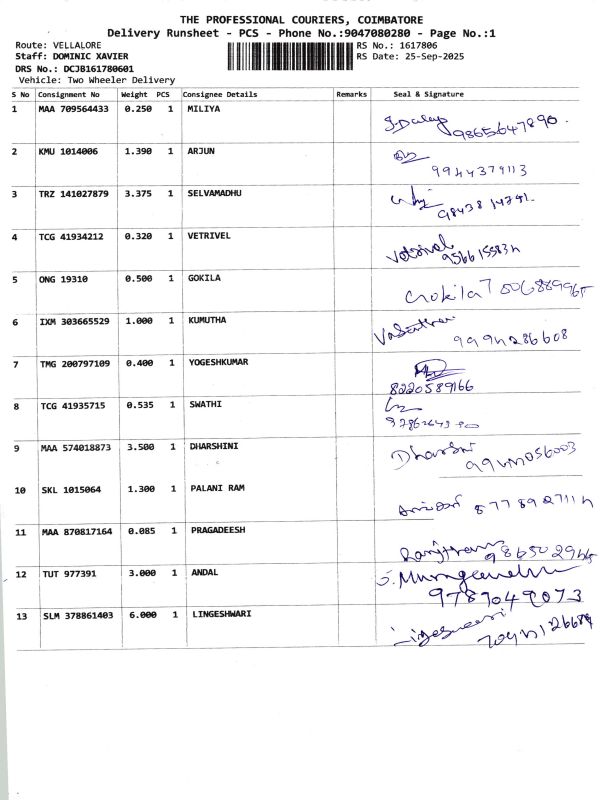 THE PROFESSIONAL COURIERS, COIMBATORE
Delivery Runsheet - PCS - Phone No.:9047080280 - Page No.:1
Route: VELLALORE RS No.: 1617806
Staff: DOMINIC XAVIER RS Date: 25-Sep-2025
DRS No.: DCJB161780601
Vehicle: Two Wheeler Delivery
S No Consignment No Weight PCS Consignee Details Remarks Seal & Signature
1 MAA 709564433 0.250 1 MILIYA 9865647890.
2 KMU 1014006 1.390 1 ARJUN 9944379113
3 TRZ 141027879 3.375 1 SELVAMADHU
4 TCG 41934212 0.320 1 VETRIVEL Vetrivel
5 ONG 19310 0.500 1 GOKILA Gokila
6 IXM 303665529 1.000 1 KUMUTHA
7 TMG 200797109 0.400 1 YOGESHKUMAR
8220589166
8 TCG 41935715 0.535 1 SWATHI
9 MAA 574018873 3.500 1 DHARSHINI
10 SKL 1015064 1.300 1 PALANI RAM
11 MAA 870817164 0.085 1 PRAGADEESH
12 TUT 977391 3.000 1 ANDAL
9789049073
13 SLM 378861403 6.000 1 LINGESHWARI